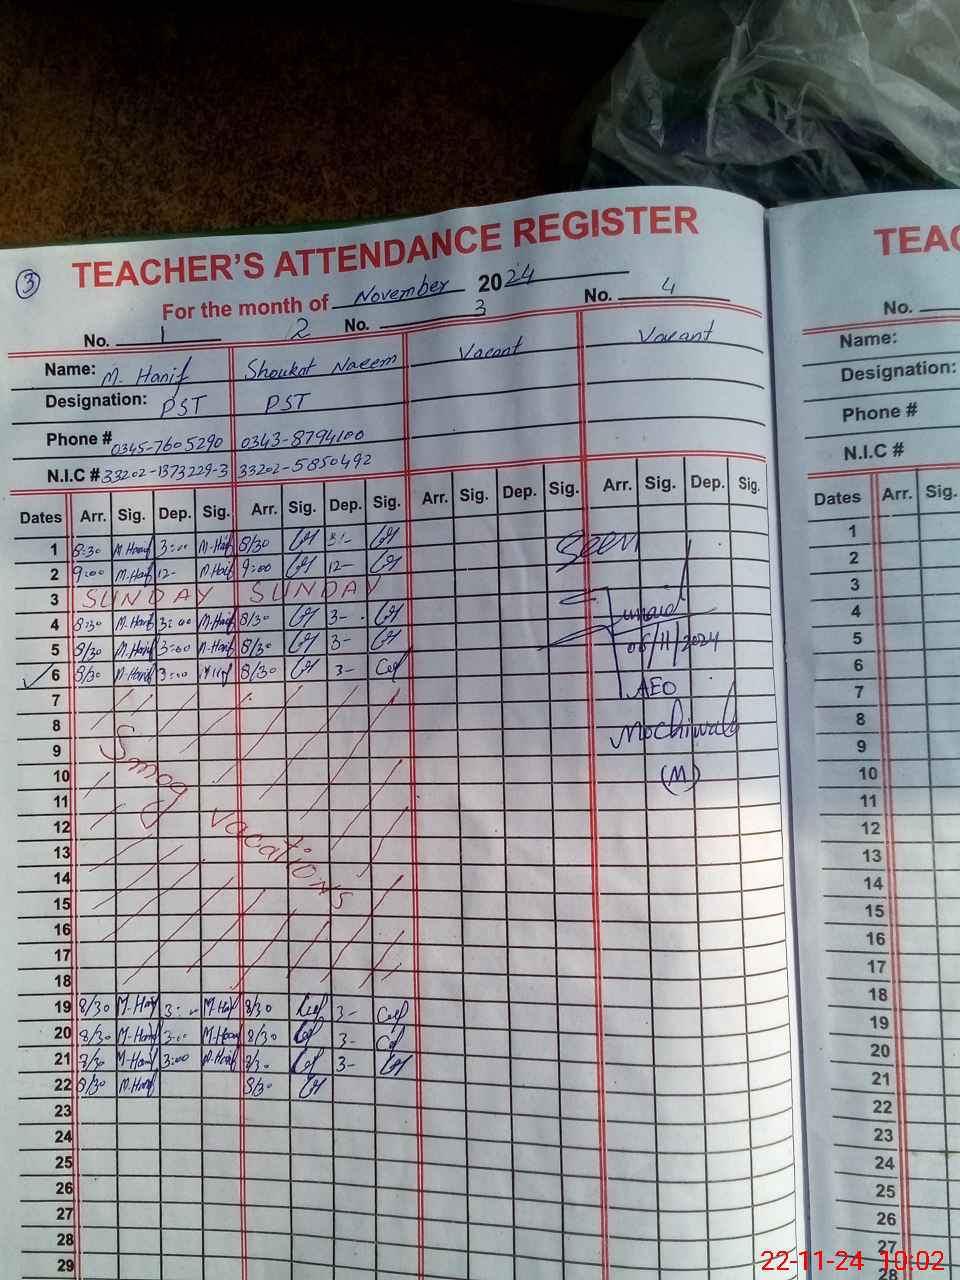 3
TEACHER'S ATTENDANCE REGISTER
For the month of November 2024
No. 1 2 No. 3 No. 4
Name: M. Hanif Shoukat Naeem Vacant Vacant
Designation: PST PST
Phone # 0345-7605290 0343-8794100
N.I.C # 33202-1373229-3 33202-5850492
Dates Arr. Sig. Dep. Sig. Arr. Sig. Dep. Sig. Arr. Sig. Dep. Sig. Arr. Sig. Dep. Sig.
1 8:30 M.Hanif 3:00 M.Hanif 8/30 3:- Seen
2 9:00 M.Hanif 12- M.Hanif 9:00 12-
3 SUNDAY SUNDAY
4 8:30 M.Hanif 3:00 M.Hanif 8/30 3-
5 8/30 M.Hanif 3:00 M.Hanif 8/30 3- 06/11/2024
6 8/30 M.Hanif 3:00 8/30 3- AEO
7
8 Mochiwala
9 Smog
10 (M)
11
12 vacations
13
14
15
16
17
18
19 8/30 M.Hanif 3: M.Hanif 8/30 3-
20 8/30 M.Hanif 3:00 M.Hanif 8/30 3-
21 8/30 M.Hanif 3:00 M.Hanif 8/30 3-
22 8/30 M.Hanif 8/30
23
24
25
26
27
28
29
TEAC
No.
Name:
Designation:
Phone #
N.I.C #
Dates Arr. Sig.
1
2
3
4
5
6
7
8
9
10
11
12
13
14
15
16
17
18
19
20
21
22
23
24
25
26
27
28
22-11-24 10:02